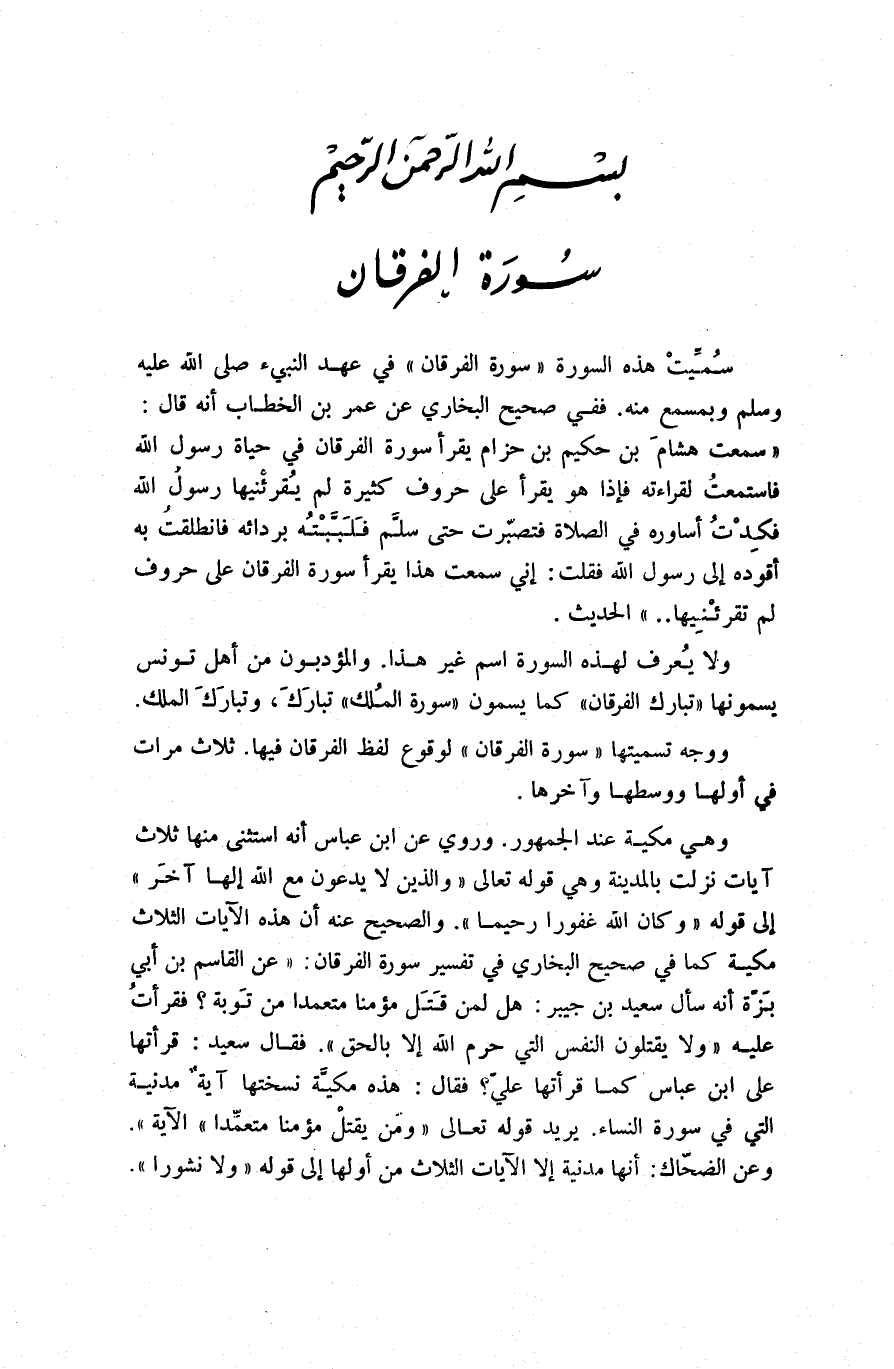 بسم الله الرحمن الرحيم
سُورَة الفرقان
سُمِّيتْ هذه السورة « سورة الفرقان » في عهد النبيء صلى الله عليه
وسلم وبمسمع منه. ففي صحيح البخاري عن عمر بن الخطاب أنه قال :
« سمعت هشامَ بن حكيم بن حزام يقرأ سورة الفرقان في حياة رسول الله
فاستمعتُ لقراءته فإذا هو يقرأ على حروف كثيرة لم يُقرئْنيها رسولُ الله
فكِدْتُ أساوره في الصلاة فتصبّرت حتى سلَّم فَلَبَّبْتُه بردائه فانطلقتُ به
أقوده إلى رسول الله فقلت: إني سمعت هذا يقرأ سورة الفرقان على حروف
لم تقرئْنِيها.. » الحديث .
ولا يُعرف لهذه السورة اسم غير هذا. والمؤدبون من أهل تونس
يسمونها «تبارك الفرقان» كما يسمون «سورة المُلك» تبارَكَ، وتبارَكَ الملك.
ووجه تسميتها « سورة الفرقان » لوقوع لفظ الفرقان فيها. ثلاث مرات
في أولها ووسطها وآخرها .
وهي مكية عند الجمهور. وروي عن ابن عباس أنه استثنى منها ثلاث
آيات نزلت بالمدينة وهي قوله تعالى « والذين لا يدعون مع الله إلها آخَر »
إلى قوله « وكان الله غفورا رحيما ». والصحيح عنه أن هذه الآيات الثلاث
مكية كما في صحيح البخاري في تفسير سورة الفرقان: « عن القاسم بن أبي
بَزّة أنه سأل سعيد بن جبير : هل لمن قَتَل مؤمنا متعمدا من تَوبة ؟ فقرأتُ
عليه « ولا يقتلون النفس التي حرم الله إلا بالحق ». فقال سعيد : قرأتها
على ابن عباس كما قرأتها عليّ؟ فقال : هذه مكيَّة نسختها آيةٌ مدنية
التي في سورة النساء. يريد قوله تعالى « ومَن يقتلْ مؤمنا متعمِّدا » الآية ».
وعن الضحّاك: أنها مدنية إلا الآيات الثلاث من أولها إلى قوله « ولا نشورا ».